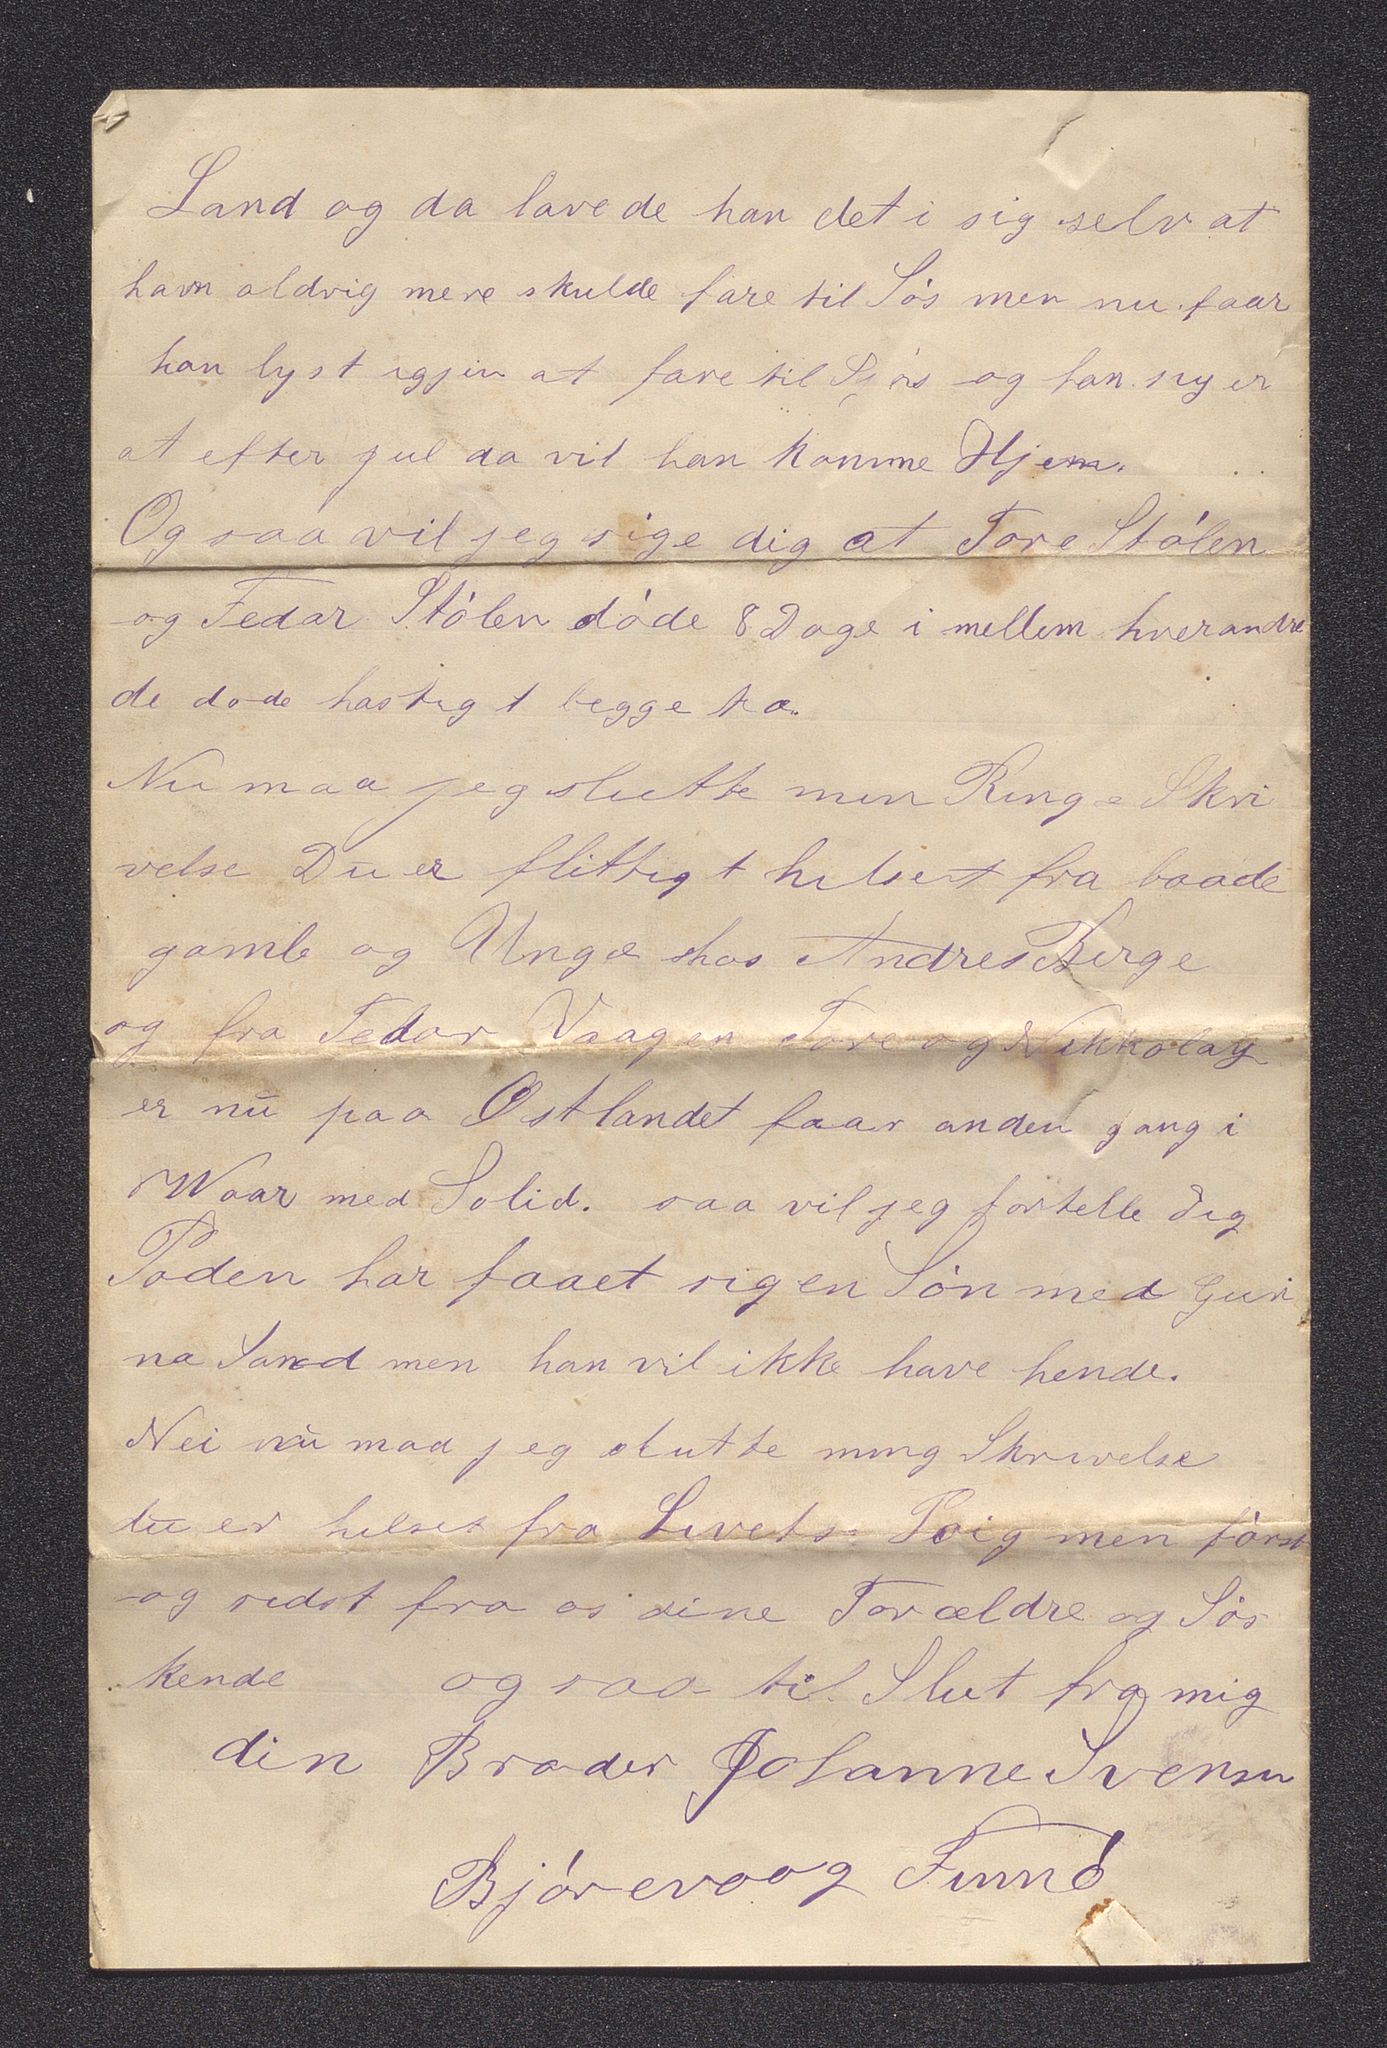 Land og da lavede han det i sig selv at
havn aldrig mere skulde fare til Søs men nu faar
han lyst igjin at fare til Sjøs og han siger
at efter jul da vil han komme Hjem.
Og saa vil jeg sige dig at Tore Stólen
og Fedar Stólen dóde 8 Dage i mellem hverandre
de dode hastigt begge to.
Nu maa jeg slutte min Ringe Skri
velse Du er flittigt hilset fra baade
gamle og Unge hos Andres Berge
og fra Fedar Vaagen Tore og Nikkolay
er nu paa Østlandet faar anden gang i
Waar med Solid. saa vil jeg fortelle Dig
Paden har faaet sig en Són med Guri
na Sand men han vil ikke have hende.
Nei nu maa jeg slutte ming Skrivelse
du er hilset fra Sivets men fórst
og sidst fra os dine Forældre og Søs
kende og saa til Slut fra mig
din Broder Johanne Svensen
Bjórevaag Finnó